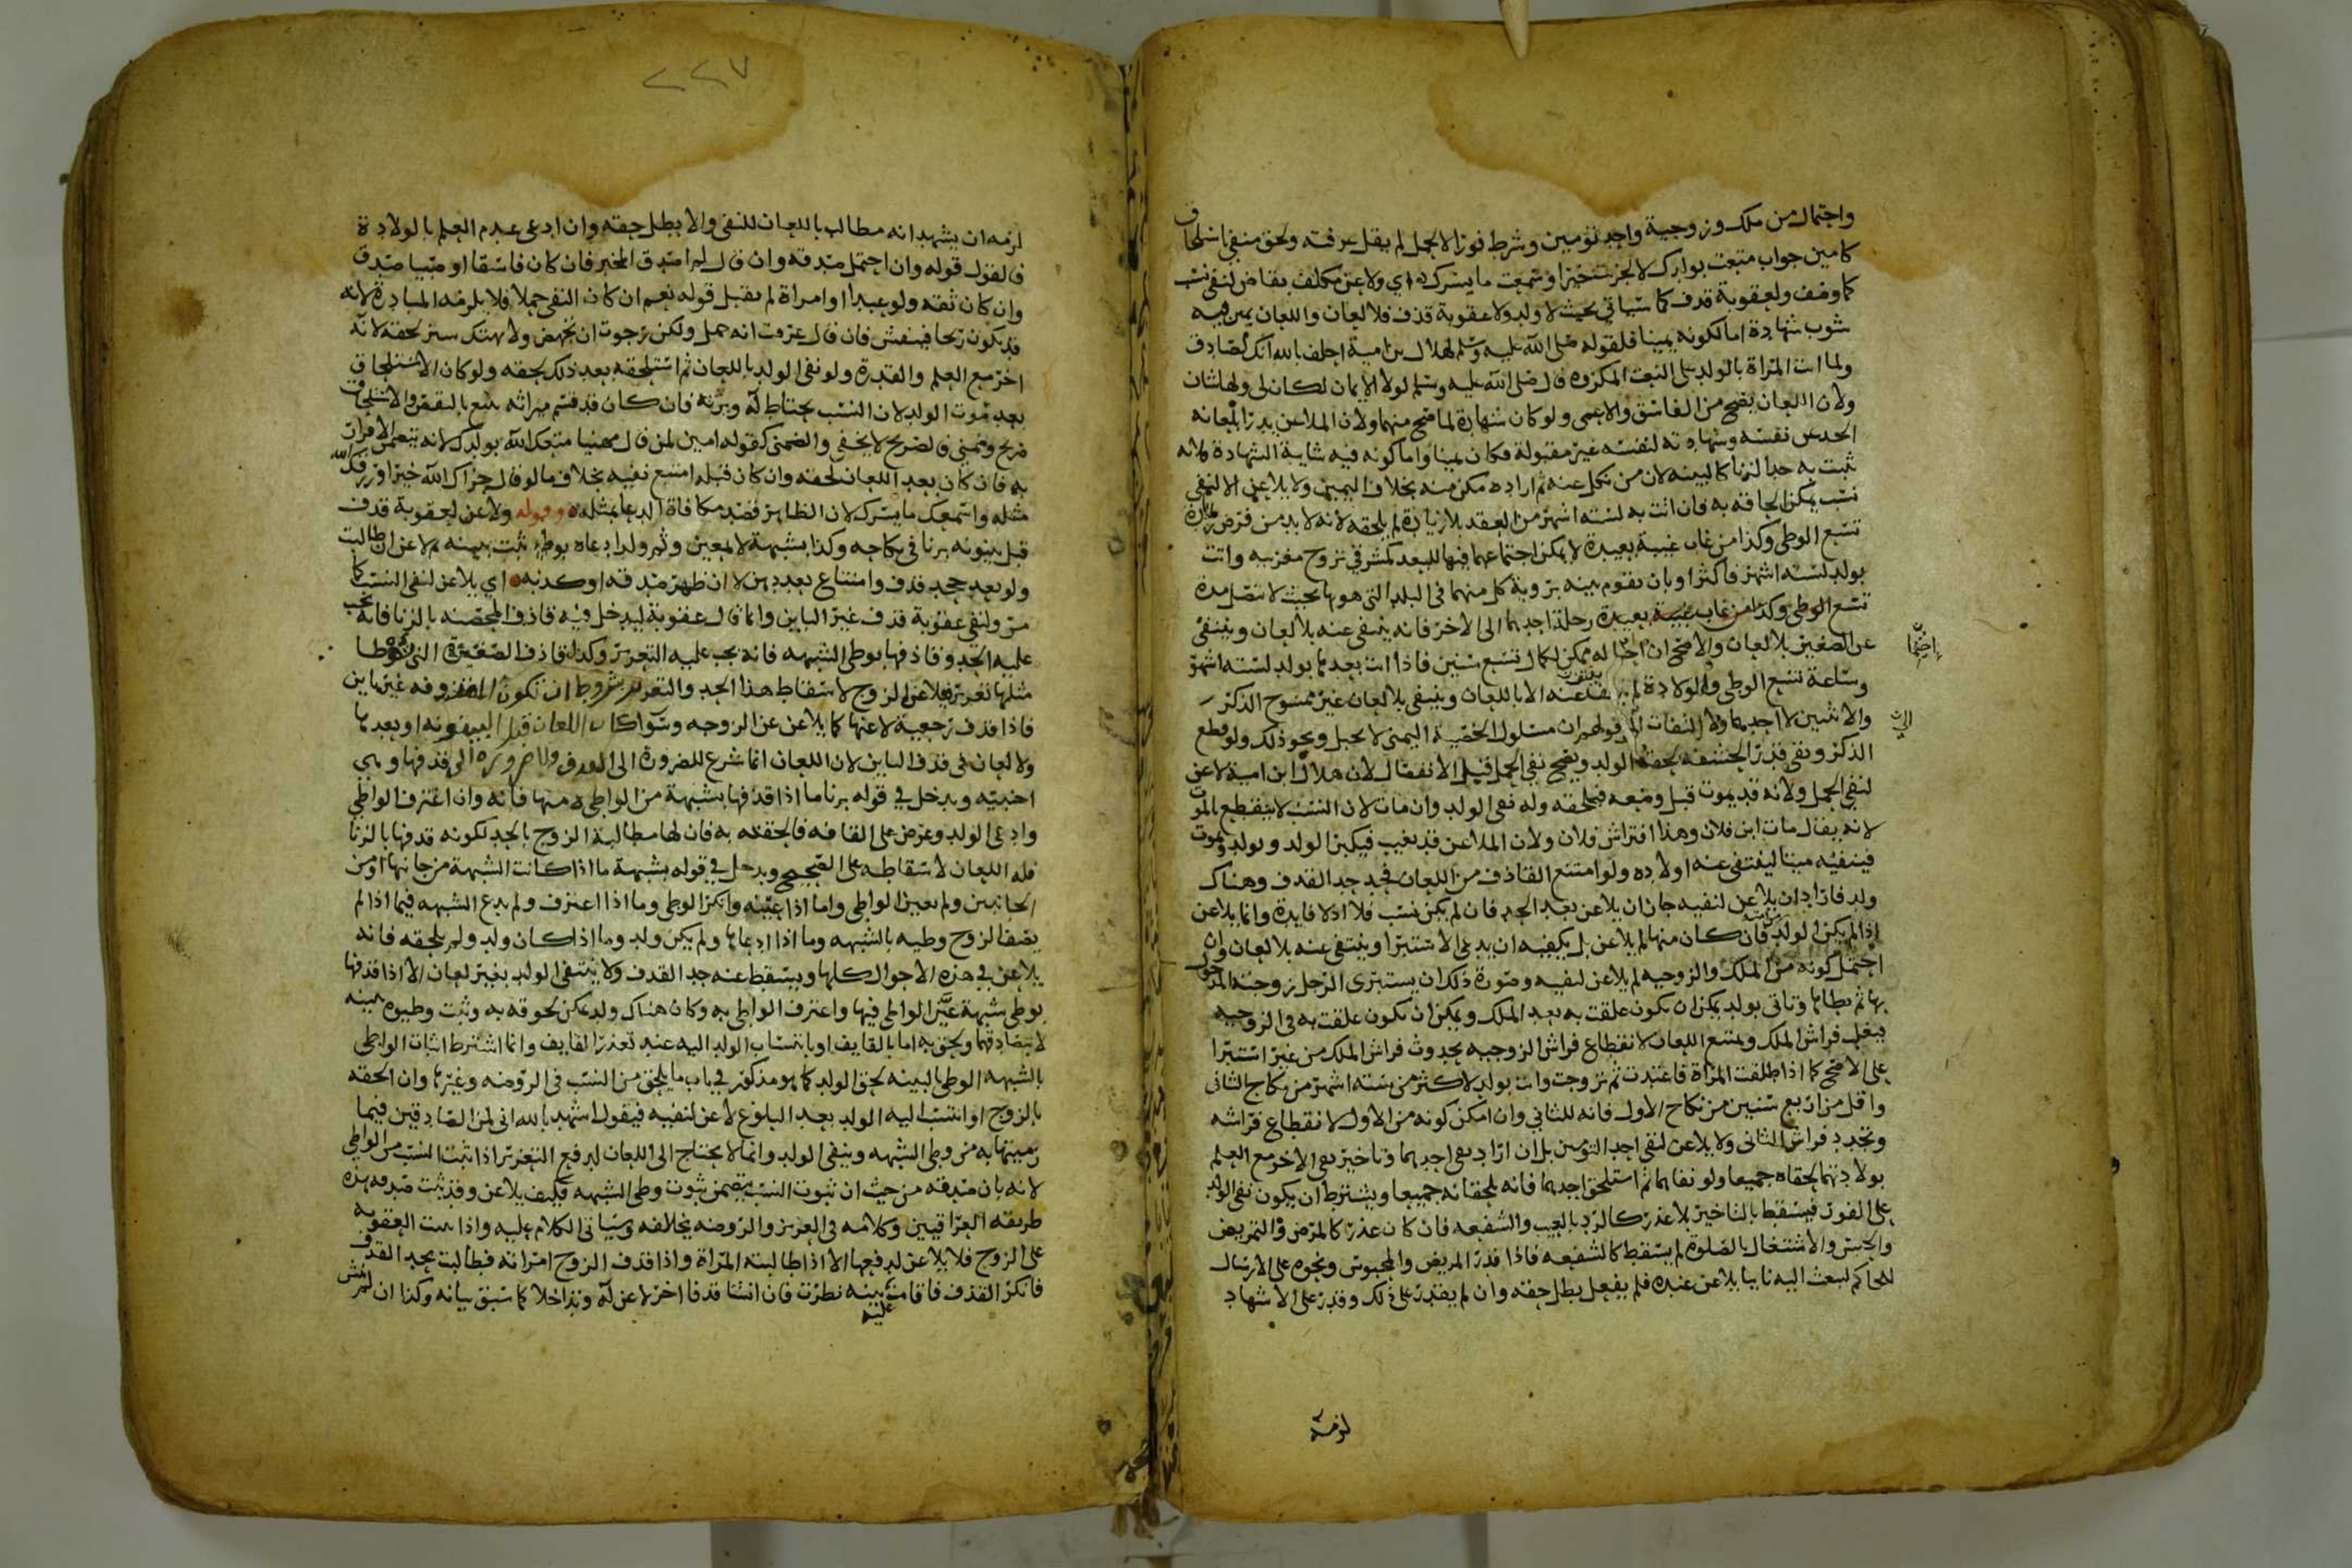 واحتمال من ملك وزوجية واحد تومين وشرط فورا لا لحمل لم يقل عرفته ولحق منفي استلحاق
كامين جواب متعت بولدك لا لجزيت خيرا وسمعت ما يسرك اي ولاعن مكلف بقاض لنفي نسب
كما وصف ولعقوبة قذف كما سياتي بحيث لا ولد ولا عقوبة قذف فلا لعان واللعان يمين فيه
شوب شهادة اما لكونه يمينا فلقوله صلى الله عليه وسلم لهلال بن امية احلف بالله انك لصادق
ولما اتت المراة بالولد على النعت المكروه قال صلى الله عليه وسلم لولا الايمان لكان لي ولها شان
ولان اللعان يصح من الفاسق والاعمى ولو كان شهادة لما صح منهما ولان الملاعن يدرا بلعانه
الحد عن نفسه وشهادته لنفسه غير مقبولة فكان يمينا واما كونه فيه شايبة الشهادة فلانه
يثبت به حد الزنا كالبينه لان من نكل عنه ثم اراده مكن منه بخلاف اليمين ولا يلاعن الا لنفي
نسب يمكن الحاقه به فان اتت به لستة اشهر من العقد بلا زيادة لم يلحقه لانه لا بد من فرض زمان
تتبع الوطى وكذا من غاب غيبة بعيدة لا يمكن اجتماعهما فيها للبعد كمشرقي تزوج مغربيه واتت
بولد لستة اشهر فاكثر او بان تقوم بينه بتروية كل منهما في البلد التي هو بها بحيث لا تتصل مدة
تتبع الوطى وكذا من غاب غيبة بعيدة رحلة احدهما الى الاخر فانه ينتفى عنه بلا لعان وينتفي
عن الصغير بلا لعان والاصح ان احباله ممكن لكمال تسع سنين فاذا اتت بعدها بولد لستة اشهر
وساعة تتبع الوطى والولادة لم ينتف عنه الا باللعان وينتفى بلا لعان عن ممسوح الذكر
والانثيين لا احدهما ولا التفات الى قولهم ان مسلول الخصية اليمنى لا يحبل ونحو ذلك ولو قطع
الذكر وبقى قدر الحشفه لحقه الولد ويصح نفي الحمل قبل الانفصال لان هلال ابن امية لاعن
لنفي الحمل ولانه قد يموت قبل وضعه فيلحقه وله نفي الولد وان مات لان النسب لا ينقطع بالموت
لانه يقال مات ابن فلان وهذا افتراش فلان ولان الملاعن قد يغيب فيكبر الولد ويولد ويموت
فينفيه ميتا لينتفي عنه اولاده ولو امتنع القاذف من اللعان فحد حد القذف وهناك
ولد فاراد ان يلاعن لنفيه جاز ان يلاعن بعد الحد فان لم يكن نسب فلا اذ لا فايدة وانما يلاعن
اذا لم يكن الولد من امته فان كان منها لم يلاعن بل يكفيه ان يدعى الاستبرا وينتفي عنه بلا لعان وان
احتمل كونه من الملك والزوجيه لم يلاعن لنفيه وصورة ذلك ان يستبرى الرجل زوجته المدخول
بها ثم يطاها وتاتي بولد يمكن ان يكون علقت به بعد الملك ويمكن ان يكون علقت به في الزوجيه
فيغلب فراش الملك ويمتنع اللعان لانقطاع فراش الزوجيه بحدوث فراش الملك من غير استبرا
على الاصح كما اذا طلقت المراة فاعتدت ثم تزوجت واتت بولد لاكثر من ستة اشهر من نكاح الثاني
واقل من اربع سنين من نكاح الاول فانه للثاني وان امكن كونه من الاول لانقطاع فراشه
وتجدد فراش الثاني ولا يلاعن لنفي احد التومين بل ان اراد نفي احدهما وتاخير نفي الاخر مع العلم
بولادتهما لحقاه جميعا ولو نفاهما ثم استلحق احدهما فانه يلحقانه جميعا ويشترط ان يكون نفي الولد
على الفور فيسقط بالتاخير بلا عذر كالرد بالعيب والشفعه فان كان عذر كالمرض والتمريض
والحبس والاشتغال بالصلوة لم يسقط كالشفعه فاذا قدر المريض والمحبوس ونحوه على الارسال
للحاكم ليبعث اليه نايبا يلاعن عنده فلم يفعل بطل حقه وان لم يقدر على ذلك وقدر على الاشهاد
لزمه
٢٢٧
لزمه ان يشهد انه مطالب باللعان للنفي والا بطل حقه وان ادعى عدم العلم بالولادة
فالقول قوله وان احتمل صدقه وان قال لم اصدق المخبر فان كان فاسقا او صبيا صدق
وان كان ثقه ولو عبدا او امراة لم يقبل قوله نعم ان كان النفي حملا فلا يلزمه المبادرة لانه
قد يكون ريحا فينفش فان قال عرفت انه حمل ولكن رجوت ان يجهض ولا يهتك ستر لحقه لانه
اخر مع العلم والقدرة ولو نفى الولد باللعان ثم استلحقه بعد ذلك لحقه ولو كان الاستلحاق
بعد موت الولد لان النسب يحتاط له ويرثه فان كان قد قسم ميراثه تتبع بالنقض والاستلحاق
صريح وضمني فالصريح لا يخفى والضمني كقوله امين لمن قال مهنيا متعك الله بولدك لانه يتضمن الاقرار
به فان كان بعد اللعان لحقه وان كان قبله امتنع نفيه بخلاف ما لو قال جزاك الله خيرا ورزقك الله
مثله واسمعك ما يسرك لان الظاهر قصد مكافاة الدعا بمثله وقوله ولاعن لعقوبة قذف
قبل بينونه بزنا في نكاحه وكذا بشبهة لا لمعين وثم ولد ادعاه بوطى ثبت ببينه ملاعن ان طالبت
ولو بعد جحد قذف وامتناع بعدهن لا ان ظهر صدقه او كذبه اي يلاعن لنفي النسب كما
مر ولنفي عقوبة قذف غير الباين وانما قال عقوبة ليدخل فيه قاذف المحصنه بالزنا فانه يجب
عليه الحد وقاذفها بوطى الشبهه فانه يجب عليه التعزير وكذا قاذف الصغيرة التي توطا
مثلها تعزير فيلاعن الزوج لاسقاط هذا الحد والتعزير بشروط ان تكون المقذوفه غير باين
فاذا قذف رجعية لاعنها كما يلاعن عن الزوجه وسوا كان اللعان قبل البينونه او بعدها
ولا لعان في قذف الباين لان اللعان انما شرع للضرورة الى القذف ولا ضرورة الى قذفها وهي
اجنبيه ويدخل في قوله بزنا ما اذا قذفها بشبهة من الواطى لا منها فانه وان اعترف الواطى
وادعى الولد وعرض على القافه فالحقته به فان لها مطالبة الزوج بالحد لكونه قذفها بالزنا
فله اللعان لاسقاطه على الصحيح ويدخل في قوله بشبهة ما اذا كانت الشبهة من جانبها او من
الجانبين ولم يعين الواطى واما اذا عينه وانكر الوطى وما اذا اعترف ولم يدع الشبهه فيما اذا لم
يصف الزوج وطيه بالشبهه وما اذا ادعاها ولم يكن ولد وما اذا كان ولد ولم يلحقه فانه
يلاعن في هذه الاحوال كلها ويسقط عنه حد القذف ولا ينتفي الولد بغير لعان الا اذا قذفها
بوطى شبهة عين الواطى فيها واعترف الواطى به وكان هناك ولد يمكن لحوقه به وثبت وطيوه ببينه
لا بتصادقهما ولحق به اما بالقايف او بانتساب الولد اليه عند تعذر القايف وانما اشترط اثبات الواطى
بالشبهه الوطى بالبينه لحق الولد كما هو مذكور في باب ما يلحق من النسب في الروضه وغيرها وان الحقه
بالزوج او انتسب اليه الولد بعد البلوغ لاعن لنفيه فيقول اشهد بالله اني لمن الصادقين فيما
رميتها به من وطى الشبهه وينفي الولد وانما لا يحتاج الى اللعان لدفع التعزير اذا ثبت النسب من الواطى
لانه بان صدقه من حيث ان ثبوت النسب يتضمن ثبوت وطى الشبهه فكيف يلاعن وقد ثبت صدقه هذه
طريقه العراقيين وكلامه في العزيز والروضه يخالفه وسياتي الكلام عليه واذا ثبت العقوبه
على الزوج فلا يلاعن لدفعها الا اذا طالبته المراة واذا قذف الزوج امراته فطالبت بحد القذف
فانكر القذف فاقامت عليه بينه نظرت فان انشا قذفا اخر لاعن له وتداخلا كما سبق بيانه وكذا ان لم ينش